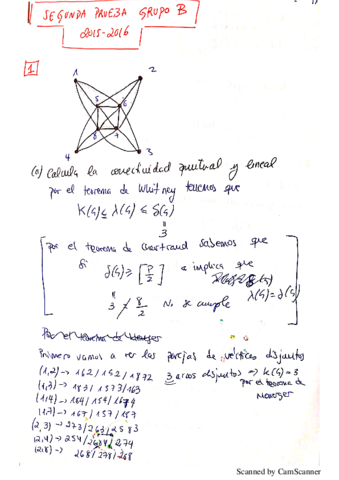 SEGUNDA PRUEBA GRUPO B
2015-2016
1
1 2
5 6
8 7
4 3
(a) Calcula la conectividad puntual y lineal
por el teorema de Whitney tenemos que
K(G) ≤ λ(G) ≤ δ(G)
"
3
por el teorema de Chartrand sabemos que
Si δ(G) ≥ [P/2] implica que
λ(G) = δ(G)
"
3 ≠ 8/2 No se cumple
Por el teorema de Menger
Primero vamos a ver las parejas de vértices disjuntos
(1,2) -> 162 / 152 / 1872 3 arcos disjuntos => K(G) = 3
(1,3) -> 183 / 1573 / 163 por el teorema de
(1,4) -> 184 / 154 / 1674 Menger
(1,7) -> 167 / 157 / 187
(2,3) -> 273 / 263 / 2583
(2,4) -> 254 / 2684 / 274
(2,8) -> 268 / 278 / 258
Scanned by CamScanner